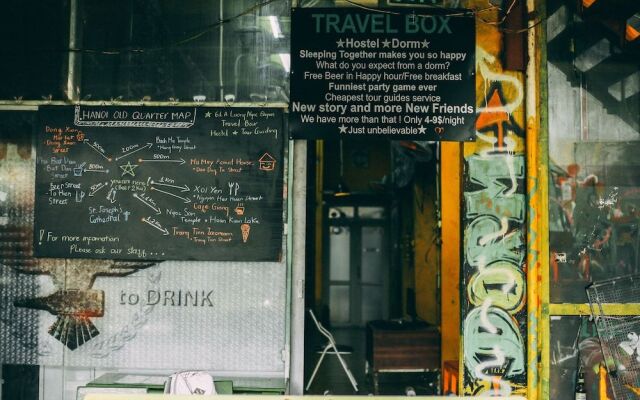 TRAVEL BOX
★Hostel ★Dorm★
Sleeping Together makes you so happy
What do you expect from a dorm?
Free Beer in Happy hour/Free breakfast
Funniest party game ever
Cheapest tour guides service
New story and more New Friends
We have more than that ! Only 4-9$/night
★Just unbelievable★
HANOI OLD QUARTER MAP
Travel Box
Hostel ★ Tour Guiding
Dong Xuan
Market
Dong Xuan
Street
800m
200m
500m
Bach Ma Temple
Hang Buong Street
Ma May Ancient House
Bat Dan
Street
400m
50m
1 km
2 km
Beer Street
Ta Hien
Street
Xoi Yen
Nguyen Huu Huan Street
Cafe Giang
St. Joseph's
Cathedral
Ngoc Son
Temple + Hoan Kiem Lake
Trang Tien Icecream
Trang Tien Street
! For more information
Please ask our staff
to DRINK